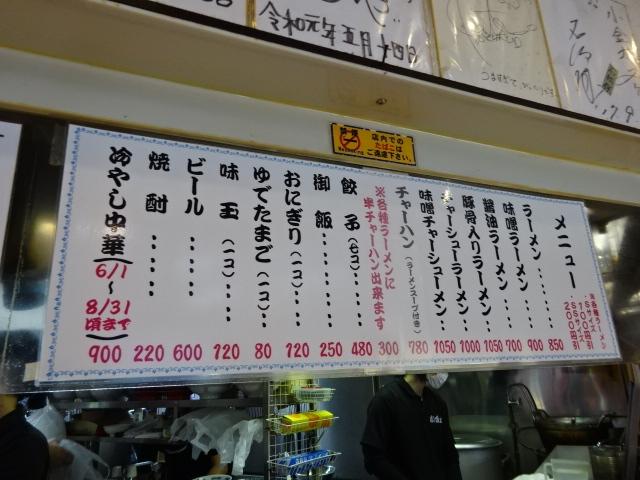 令和元年五月十四日
店内での
たばこは
ご遠慮下さい。
メニュー
※各種ラーメンより
Sサイズ 100円引
SSサイズ 200円引
ラーメン・・・・・ 850
味噌ラーメン・・・ 900
醤油ラーメン・・・ 700
豚骨入りラーメン・・ 1050
チャーシューラーメン・・ 1000
味噌チャーシューメン・・ 1050
チャーハン（ラーメンスープ付き） 780
※各種ラーメンに
半チャーハン出来ます 300
餃子（七コ）・・・ 480
御飯・・・・・・・ 250
おにぎり（一コ）・・ 120
ゆでたまご（一コ）・・ 80
味玉（一コ）・・・ 120
ビール・・・・・ 600
焼酎・・・・・ 220
冷やし中華（6/1～8/31頃まで） 900